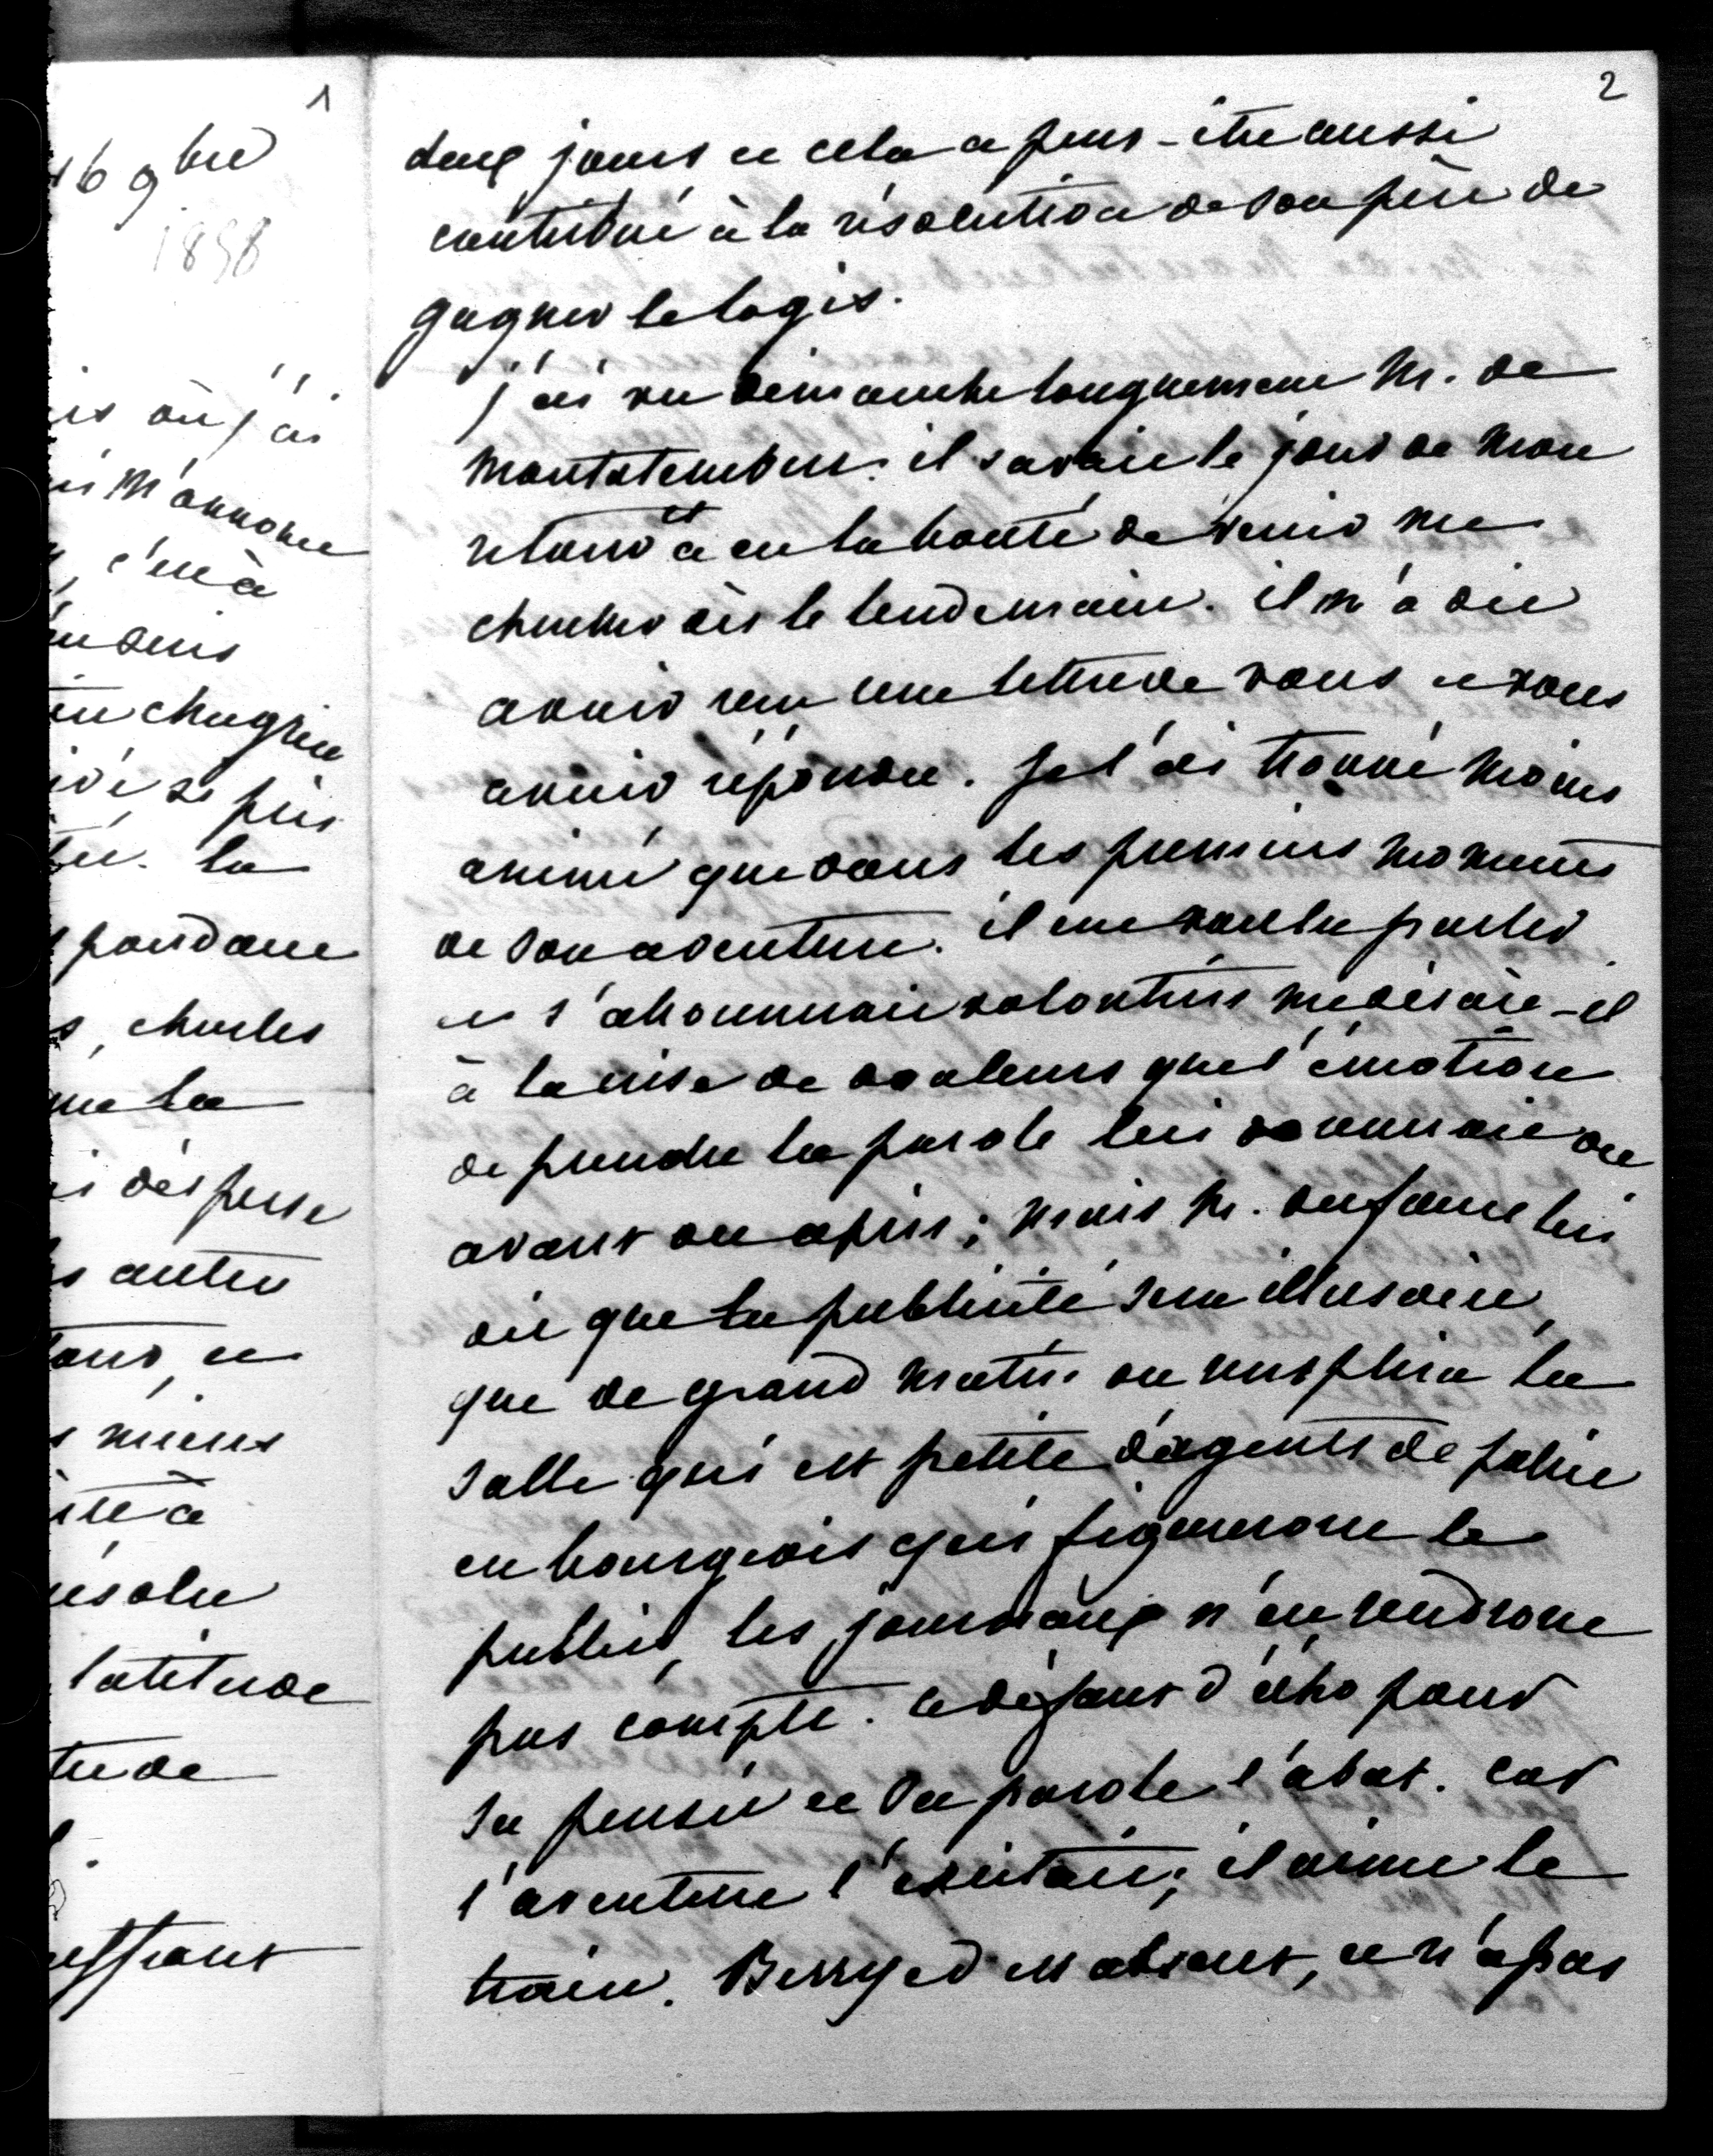 1
16 9bre
1858
is où j'ai
m'annonce
c'en à
chagrin
si pris
la
pondance
s, charles
me la
i dispense
s autre
ous, et
s miens
ette à
résolu
latitude
tude
effrant
2
deux jours et cela a peut-être aussi
contribué à la résolution de son père de
gagner le logis.
j'ai vu dimanche longuement M. de
Montalembert. il savait le jour de mon
retour et a eu la bonté de venir me
chercher dès le lendemain. il m'a dit
avoir reçu une lettre de vous et vous
avoir répondu. Je l'ai trouvé moins
animé que dans les premiers moments
de son aventure. il eut voulu parler
et s'abonnait volontiers me disait-il
à la crise de douleurs que l'émotion
de prendre la parole lui donnait ou
avant ou après; mais M. Dufaure lui
dit que la publicité sera illusoire,
que de grand matin on remplira la
salle qui est petite d'agents de police
en bourgeois qui figureront le
public, les journaux n'en rendront
pas compte. ce défaut d'écho pour
sa pensée et sa parole l'abat. car
l'aventure l'excitait; il aime le
train. Berryer est absent, et n'a pas